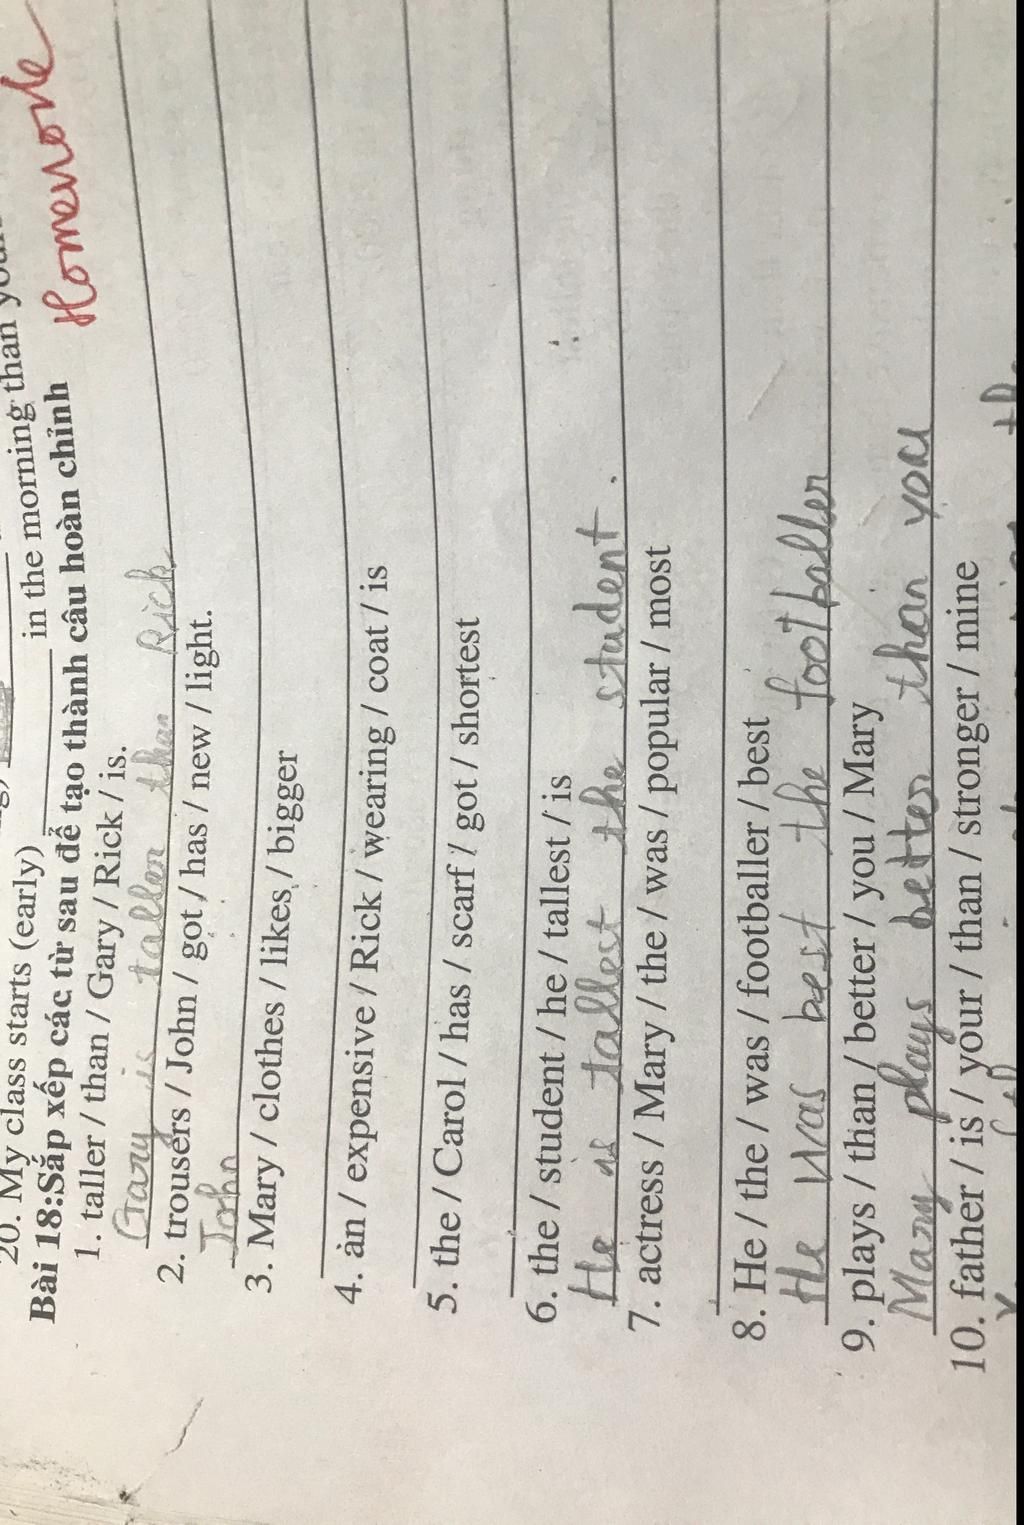 20. My class starts (early) ________ in the morning than
Homework
Bài 18:Sắp xếp các từ sau để tạo thành câu hoàn chỉnh
1. taller / than / Gary / Rick / is.
Gary is taller than Rick
2. trousers / John / got / has / new / light.
John
3. Mary / clothes / likes / bigger
4. an / expensive / Rick / wearing / coat / is
5. the / Carol / has / scarf / got / shortest
6. the / student / he / tallest / is
He is tallest the student.
7. actress / Mary / the / was / popular / most
8. He / the / was / footballer / best
He was best the footballer
9. plays / than / better / you / Mary
Mary plays better than you
10. father / is / your / than / stronger / mine